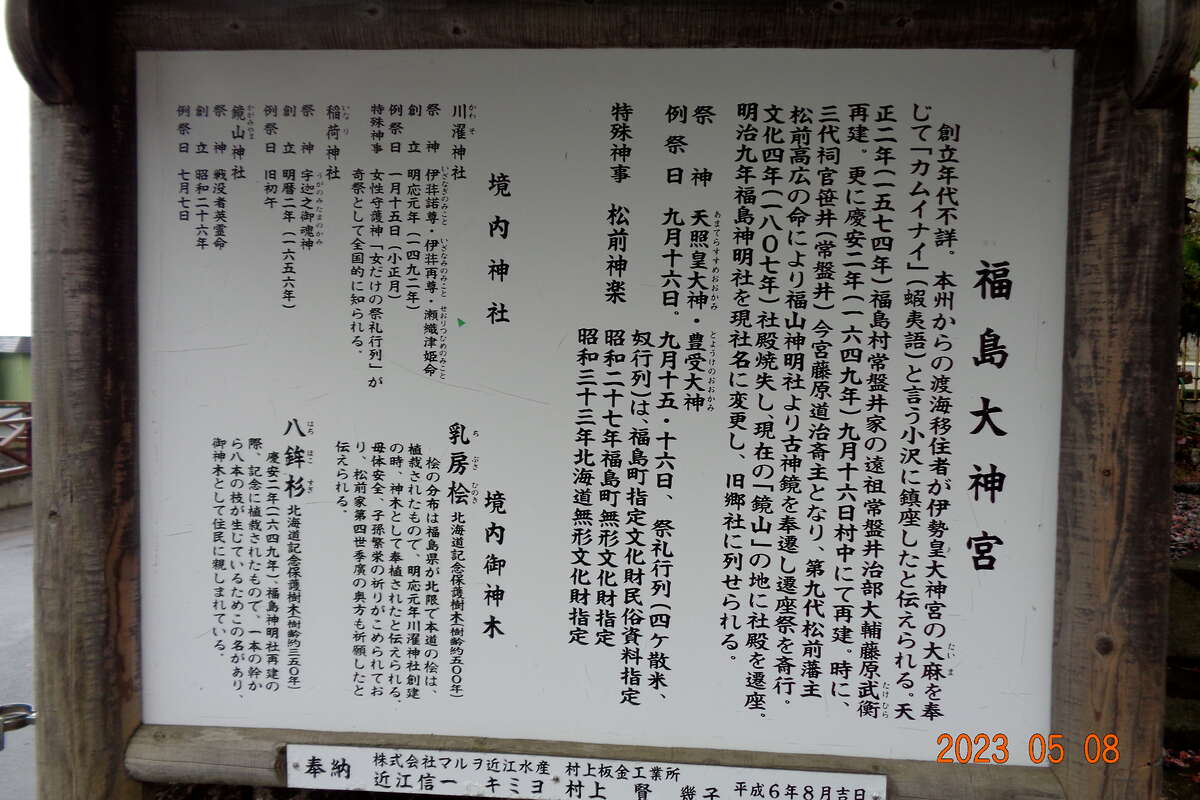 福島大神宮
創立年代不詳。本州からの渡海移住者が伊勢皇大神宮の大麻を奉
たいま
じて「カムイナイ」(蝦夷語)と言う小沢に鎮座したと伝えられる。天
正二年(一五七四年)福島村常盤井家の遠祖常盤井治部大輔藤原武衡
たけひら
再建。更に慶安二年(一六四九年)九月十六日村中にて再建。時に、
三代祠官笹井(常盤井)今宮藤原道治斎主となり、第九代松前藩主
松前高広の命により福山神明社より古神鏡を奉遷し遷座祭を斎行。
文化四年(一八〇七年)社殿焼失し、現在の「鏡山」の地に社殿を遷座。
明治九年福島神明社を現社名に変更し、旧郷社に列せられる。
祭神 天照皇大神・豊受大神
あまてらすすめおおかみ とようけのおおかみ
例祭日 九月十六日。九月十五・十六日、祭礼行列(四ケ散米、
奴行列)は、福島町指定文化財民俗資料指定
特殊神事 松前神楽 昭和二十七年福島町無形文化財指定
昭和三十三年北海道無形文化財指定
境内神社
川濯神社
かわそ
祭神 伊弉諾尊・伊弉再尊・瀬織津姫命
いざなぎのみこと いざなみのみこと せおりつひめのみこと
創立 明応元年(一四九二年)
例祭日 一月十五日(小正月)
特殊神事 女性守護神「女だけの祭礼行列」が
奇祭として全国的に知られる。
稲荷神社
いなり
祭神 宇迦之御魂神
うがのみたまのかみ
創立 明暦二年(一六五六年)
例祭日 旧初午
鏡山神社
かがみやま
祭神 戦没者英霊命
創立 昭和二十六年
例祭日 七月七日
境内御神木
乳房桧 北海道記念保護樹木(樹齢約五〇〇年)
ちぶさひのき
桧の分布は福島県が北限で本道の桧は、
植栽されたもので、明応元年川濯神社創建
の時、神木として奉植されたと伝えられる。
母体安全、子孫繁栄の祈りがこめられてお
り、松前家第四世季廣の奥方も祈願したと
伝えられる。
八鉾杉 北海道記念保護樹木(樹齢約三五〇年)
はちほこすぎ
慶安二年(一六四九年)、福島神明社再建の
際、記念に植栽されたもので、一本の幹か
ら八本の枝が生じているためこの名があり、
御神木として住民に親しまれている。
奉納 株式会社マルヲ近江水産 村上板金工業所
近江信一 キミヨ 村上 賢 幾子 平成6年8月吉日
2023 05 08